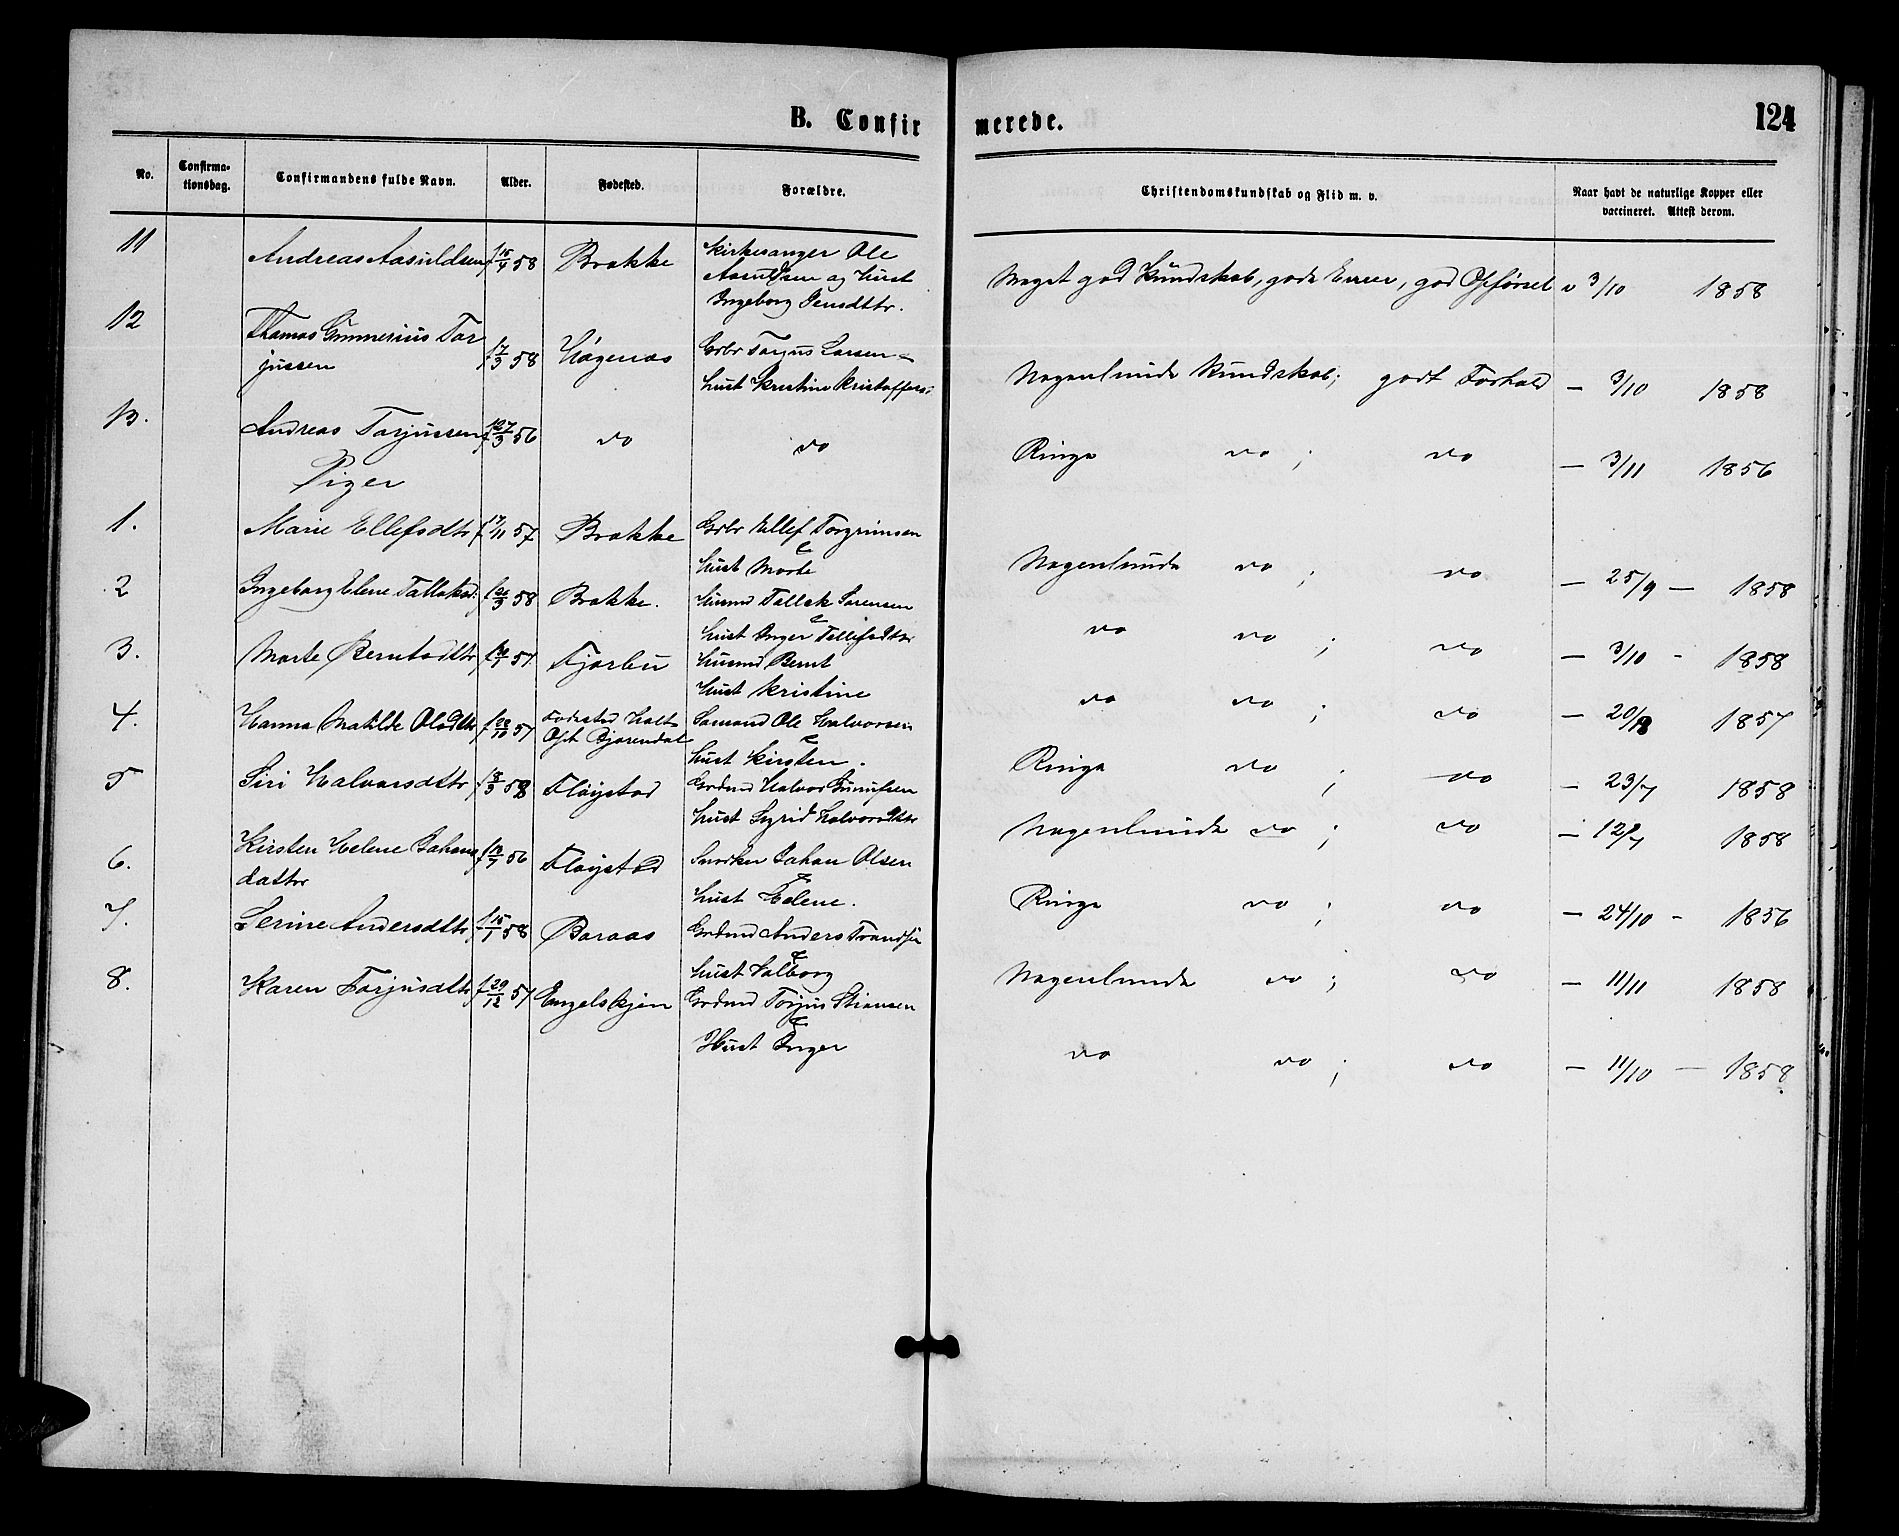 B. Confirmerede.
124
No.
Confirma-
tionsdag.
Confirmandens fulde Navn.
Alder.
Fødested.
Forældre.
Christendomskundskab og Flid m. v.
Naar havt de naturlige Kopper eller
vaccineret. Attest derom.
11 Andreas Aasuldsen f 15/4 58 Brække Kirkesanger Ole
Aasuldsen og Hust
Ingeborg Jensdttr.
Meget god Kundskab, gode Evner, god Opførsel v 3/10 1858
12 Thomas Gunnerius Tar
jussen f 7/3 58 Høgenæs Gbr Tarjus Larsen
Hust Kristine Kristoffers:
Nogenlunde Kundskab; godt Forhold — 3/10 1858
13. Andreas Tarjussen f 27/3 56 do do
Ringe do ; do — 3/11 1856
Piger
1. Marie Ellefsdtr f 17/11 57 Brække Gbr Ellef Torgrimsen
Hust Marte
Nogenlunde do ; do — 25/9 — 1858
2 Ingeborg Elene Tallaksd: 58 Brække. Husmd Tallak Sørensen
Hust Inger Tellefsdttr
do do ; do — 3/10 - 1858
3. Marte Berntsdttr 57 Fjærbu Husmd Bernt
Hust Kristine
do do ; do — 1857
4. Hanna Matilde Olsdttr f 28/10 57 Fødested Holt
Oph Bjorendal Sømand Ole Halvorsen
Hust Kirsten.
Ringe do ; do — 23/7 1858
5 Siri Halvorsdttr f 8/3 58 Fløystad Grdmd Halvor Gunulfsen
Hust Sigrid Halvorsdttr
Nogenlunde do ; do — 1858
6. Kirsten Helene Johans
datter 56 Fløystad Snedker Johan Olsen
Hust Helene.
Ringe do ; do — 24/10 - 1856
7. Serine Andersdttr f 15/1 58 Baraas Grdmd Anders
Hust Salborg
Nogenlunde do ; do — 11/11 1858
8. Karen Tarjusdtr f 29/12 57 Engelskjøn Grdmd Torjus Stiansen
Hust Inger
do do ; do — 11/10 — 1858.